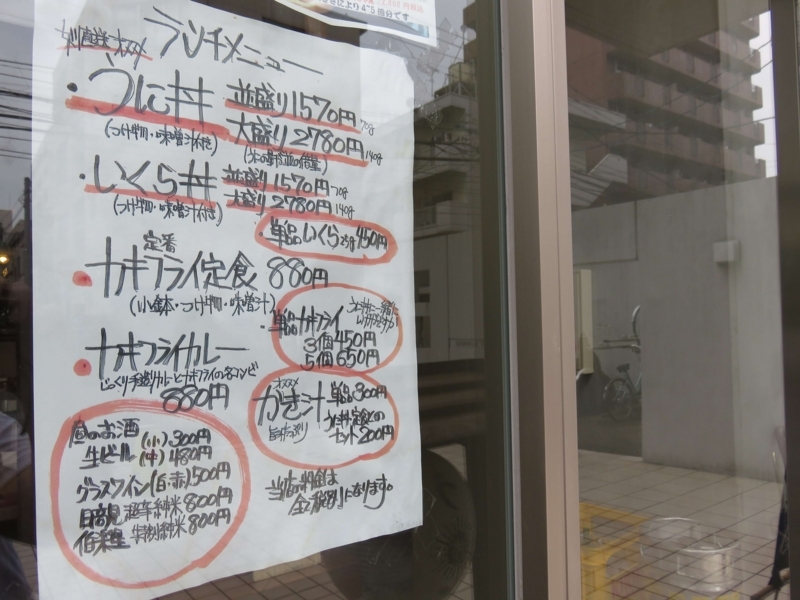 によ り4~5倍分です
女川直送・オススメ ランチメニュー
・うに丼 並盛り1570円 70g
(つけ物・味噌汁付き) 大盛り2780円 140g
・いくら丼 並盛り1570円 70g
(つけ物・味噌汁付き) 大盛り2780円 140g
単品いくら25g 450円
定番
・カキフライ定食 880円
(小鉢・つけ物・味噌汁)
単品カキフライ
3個450円
5個650円
・カキフライカレー
じっくり手造りカレーとカキフライの名コンビ
880円
オススメ
かき汁 単品300円
うに丼・定食との
セット200円
昼のお酒 (小)300円
生ビール (中)480円
グラスワイン(白・赤)500円
日高見 超辛純米800円
伯楽星 特別純米800円
当店の料金は
全て税別になります。